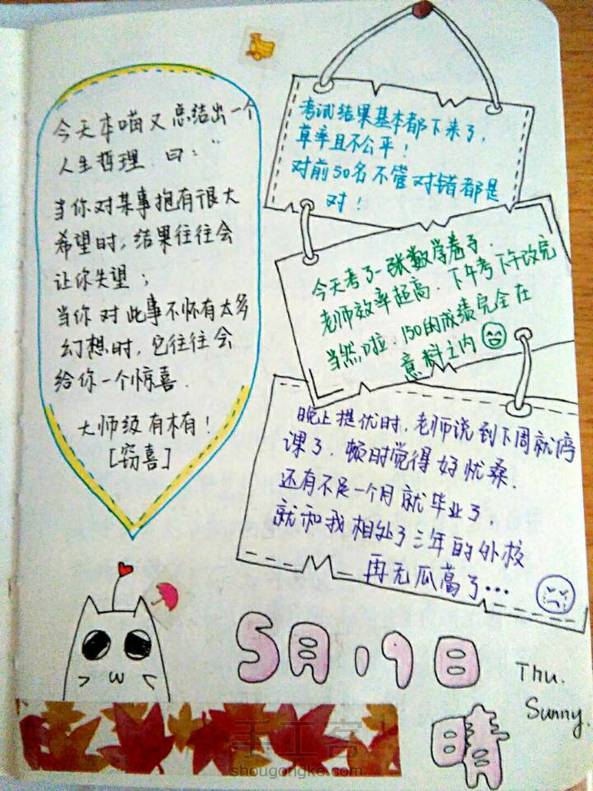 今天本喵又总结出一个
人生哲理 曰：“
当你对某事抱有很大
希望时，结果往往会
让你失望；
当你对此事不怀有太多
幻想时，它往往会
给你一个惊喜.
大师级有木有！
[窃喜]
考试结果基本都下来了，
草率且不公平！
对前50名不管对错都是
对！
今天考了一张数学卷子.
老师效率超高. 下午考下午改完
当然啦，150的成绩完全在
意料之内
晚上提优时，老师说到下周就停
课了. 顿时觉得好忧桑.
还有不足一个月就毕业了，
就和我相处了三年的外校
再无瓜葛了…
5月19日
Thu.
Sunny.
晴
手工客
shougongke.com